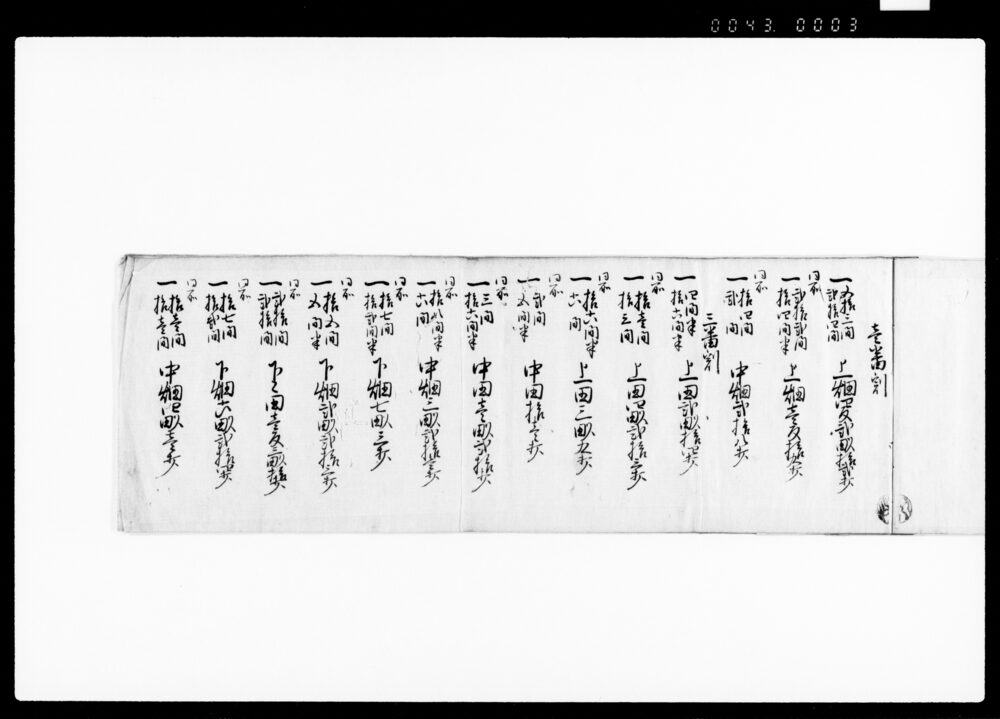 0043. 0003
壱番割
一 五拾三間 弐拾四間 上畑四反弐畝拾弐歩
同所
一 弐拾弐間 拾四間半 上畑壱反拾九歩
同所
一 拾四間 弐間 中畑弐拾八歩
二番割
一 四間半 拾六間半 上田弐畝拾四歩
同所
一 拾壱間 拾三間 上田四畝弐拾三歩
同所
一 拾六間半 六間 上田三畝九歩
同所
一 弐間 五間半 中田拾壱歩
同所
一 三間 拾六間半 中田壱畝弐拾歩
同所
一 拾八間半 六間 中畑三畝弐拾壱歩
同所
一 拾七間 拾弐間半 下畑七畝三歩
同所
一 拾五間 五間半 下畑弐畝弐拾三歩
同所
一 弐拾間 弐拾間 下々田壱反三畝拾歩
同所
一 拾七間 拾弐間 下畑六畝弐拾四歩
同所
一 拾壱間 拾壱間 中畑四畝壱歩